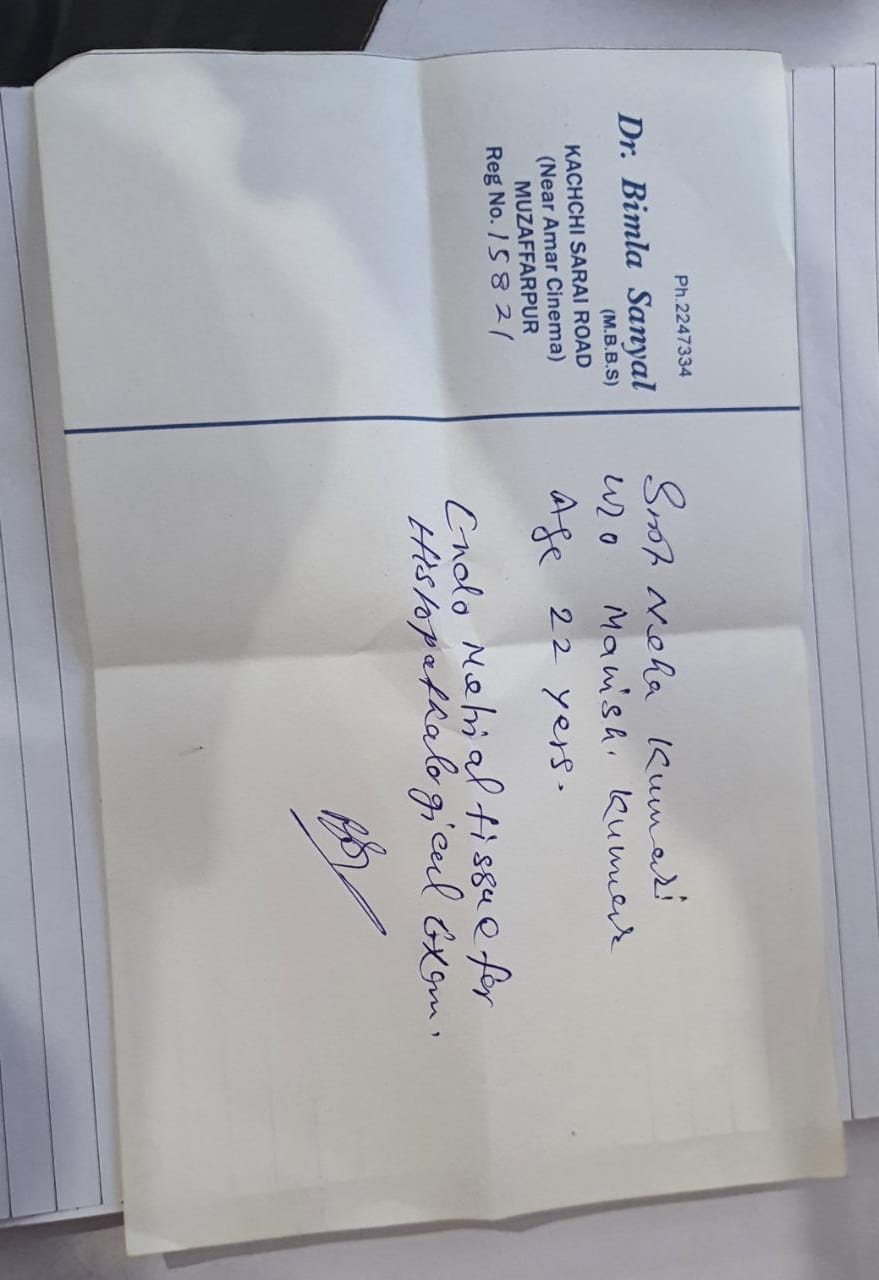 Ph.2247334
Dr. Bimla Sanyal
(M.B.B.S)
KACHCHI SARAI ROAD
(Near Amar Cinema)
MUZAFFARPUR
Reg No. 15821
Smt Neha Kumari
W/o Manish Kumar
Age 22 yers.
Endo Metrial tissue for
Histopathalogical Exam.